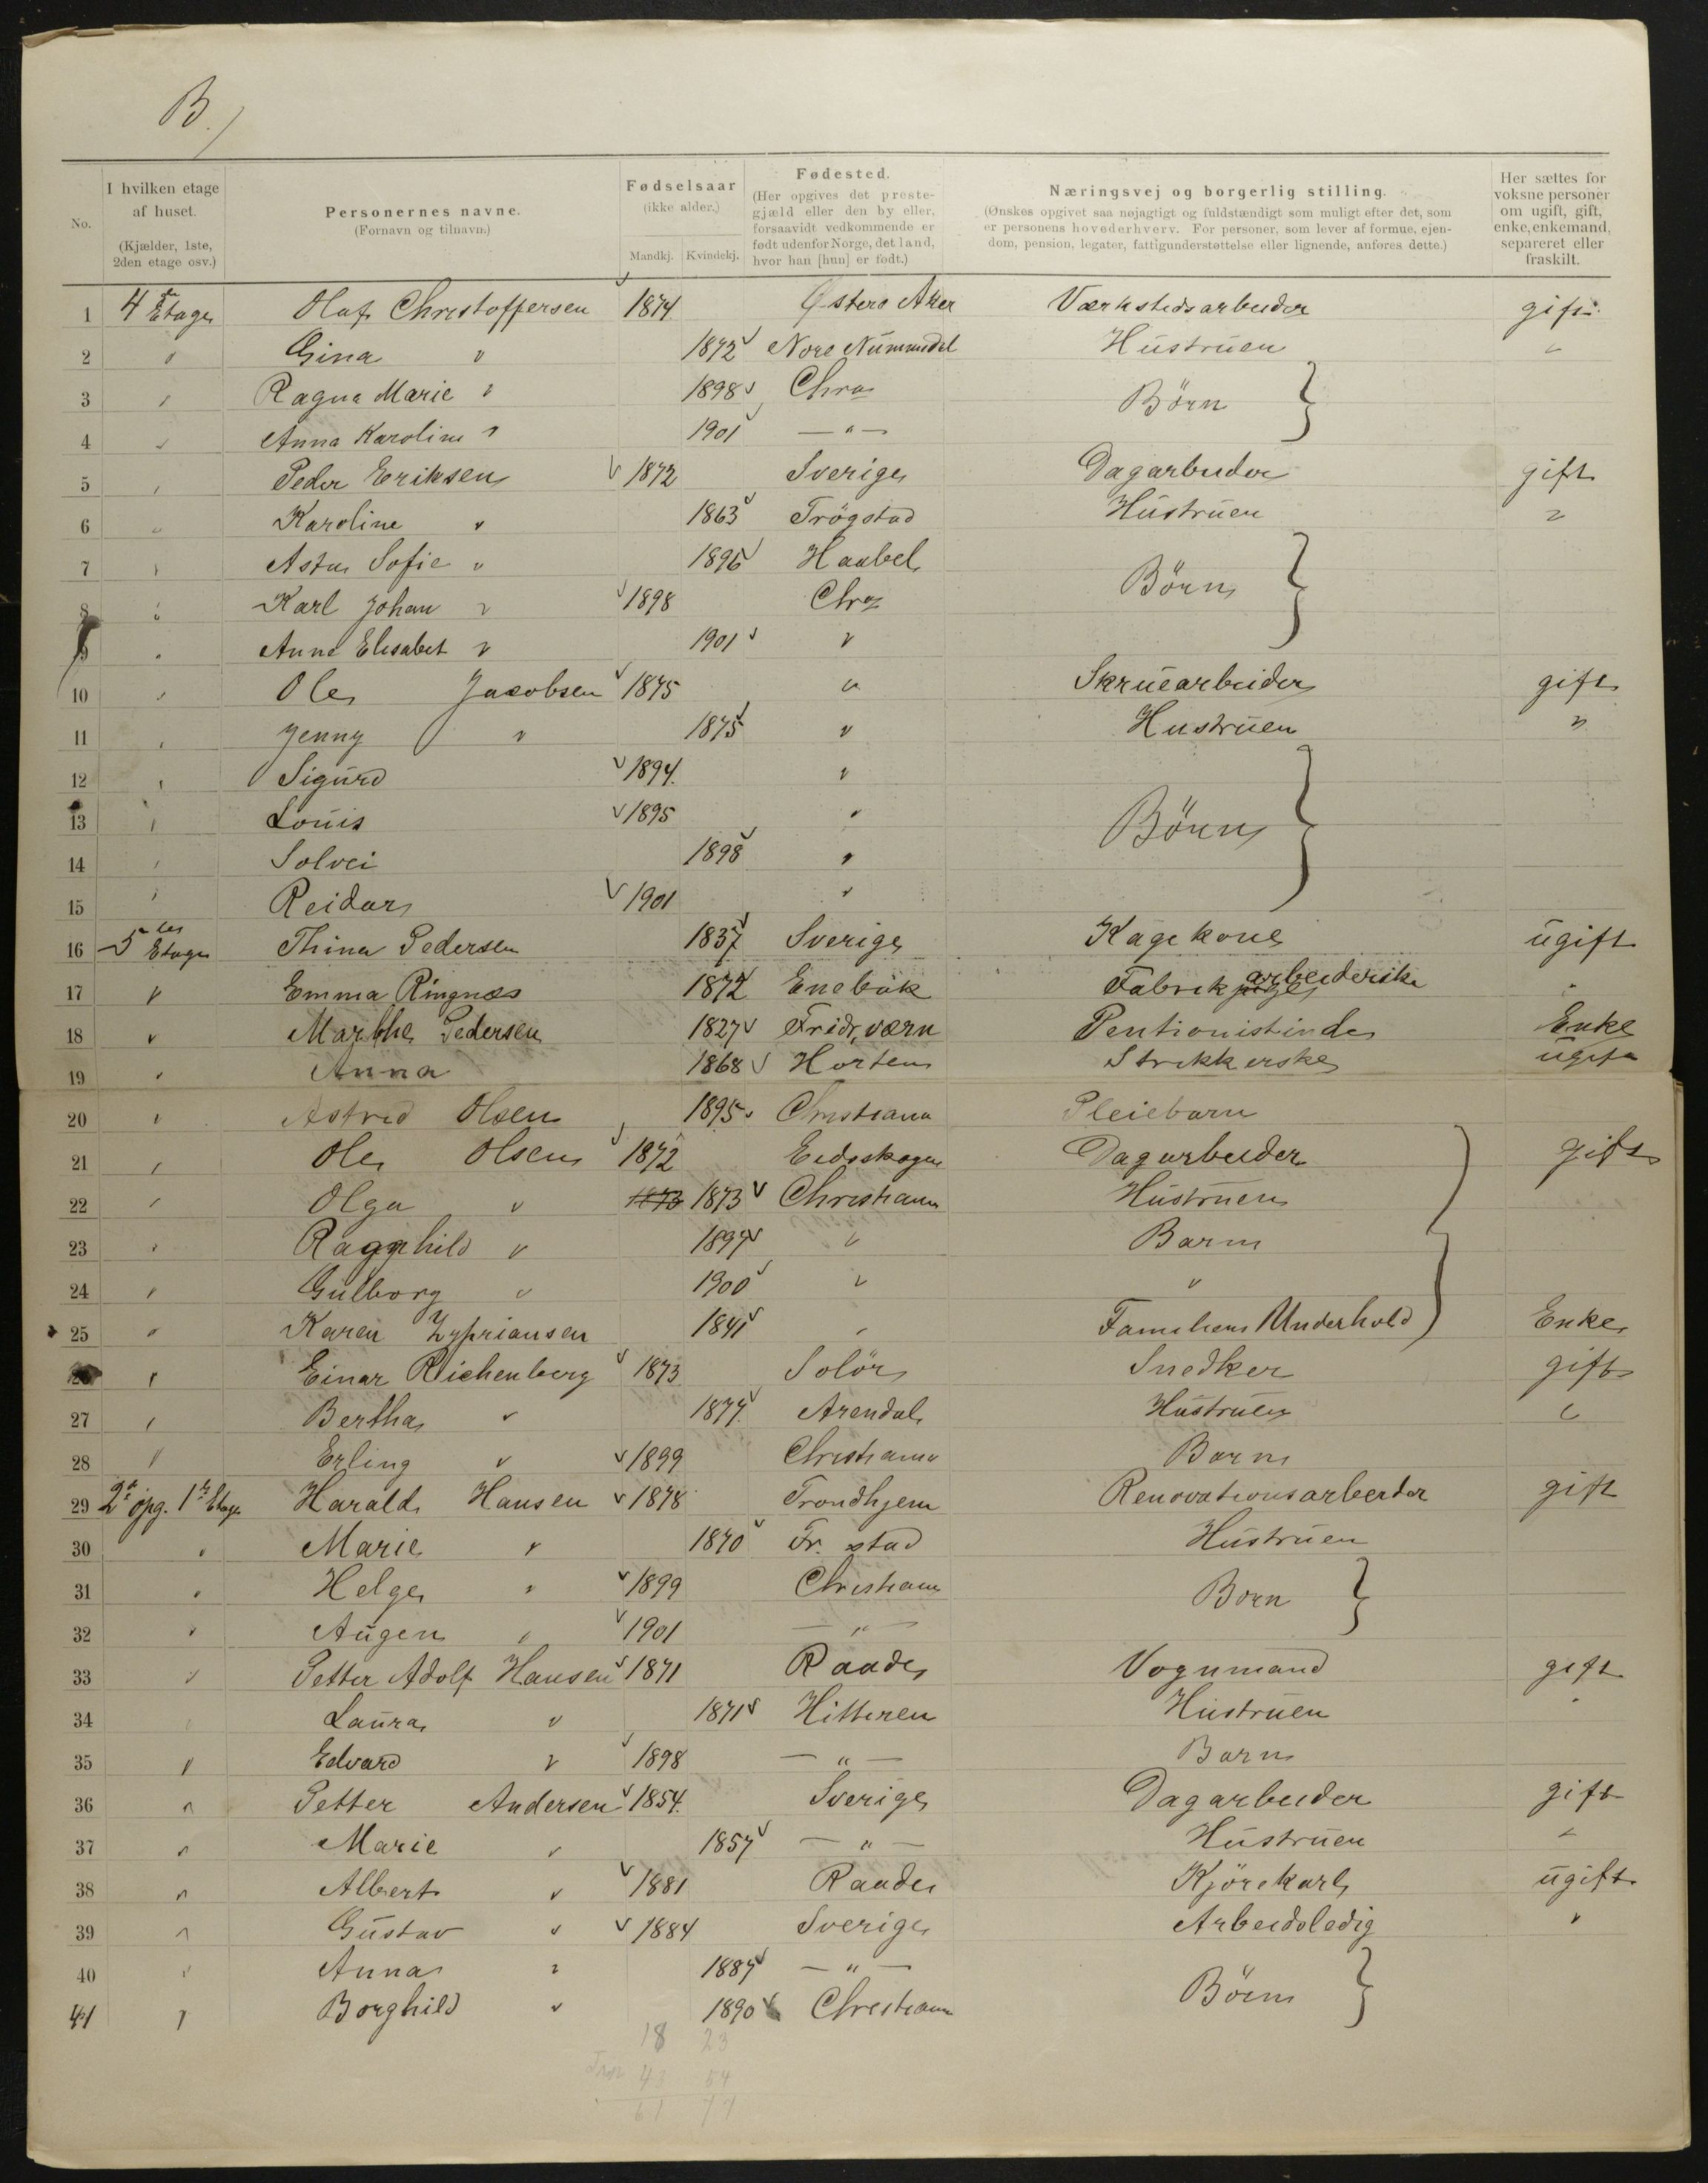 B.)
No.
I hvilken etage af huset. (Kjælder, 1ste, 2den etage osv.)
Personernes navne. (Fornavn og tilnavn.)
Fødselsaar (ikke alder.) Mandkj. Kvindekj.
Fødested. (Her opgives det prestegjæld eller den by eller, forsaavidt vedkommende er født udenfor Norge, det land, hvor han [hun] er født.)
Næringsvej og borgerlig stilling. (Ønskes opgivet saa nøjagtigt og fuldstændigt som muligt efter det, som er personens hovederhverv. For personer, som lever af formue, ejendom, pension, legater, fattigunderstøttelse eller lignende, anføres dette.)
Her sættes for voksne personer om ugift, gift, enke, enkemand, separeret eller fraskilt.
1 4de Etage Olaf Christoffersen 1874 Østere Aker Værkstedsarbeider gift
2 " Gina " 1872 Nore Nummedal Hustruen "
3 " Ragna Marie " 1898 Chra Børn }
4 " Anna Karoline " 1901 — " —
5 " Peder Eriksen 1872 Sverige Dagarbeider gift
6 " Karoline " 1863 Trögstad Hustruen "
7 " Asta Sofie " 1896 Haabel Börn }
8 " Karl Johan " 1898 Chra
9 " Anna Elisabet " 1901 "
10 " Ole Jacobsen 1875 " Skruearbeider gift
11 " Jenny " 1875 " Hustruen "
12 " Sigurd 1894. " Börn }
13 " Louis 1895 "
14 " Solvei 1898 "
15 " Reidar 1901 "
16 5te Etage Thina Pedersen 1837 Sverige Kagekone ugift
17 " Emma Ringnæs 1872 Enebak Fabrikarbeiderske "
18 " Marthe Pedersen 1827 Fridr,værn Pentionistinde Enke
19 " Anna 1868 Horten Strikkerske ugift
20 " Astrid Olsen 1895 Christiania Pleiebarn
21 " Ole Olsen 1872 Eidsskogen Dagarbeider } gift
22 " Olga " 1873 1873 Christiania Hustruen
23 " Ragnhild " 1897 " Barn }
24 " Gulborg " 1900 " "
25 " Karen Zypriansen 1841 " Familiens Underhold Enke
26 " Einar Richenberg 1873 Solör Snedker gift
27 " Bertha " 1877 Arendal Hustruen "
28 " Erling " 1899 Christiania Barn
29 2den opg. 1ste Etage Harald Hansen 1878 Trondhjem Renovationsarbeider gift
30 " Marie " 1870 Fr. stad Hustruen
31 " Helge " 1899 Christiania Born }
32 " Augen " 1901 — " —
33 " Petter Adolf Hansen 1871 Raade Vognmand gift
34 " Laura " 1871 Hitteren Hustruen "
35 " Edvard " 1898 — " — Barn
36 " Petter Andersen 1854. Sverige Dagarbeider gift
37 " Marie " 1857 — " — Hustruen "
38 " Albert " 1881 Raade Kjörekarl ugift
39 " Gustav " 1884 Sverige Arbeidsledig "
40 " Anna " 1887 — " — Börn }
41 " Borghild " 1890 Christiania
18 23
43 54
61 77